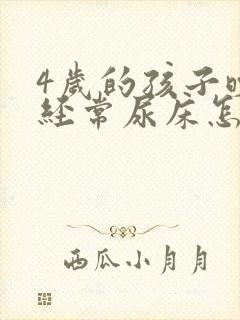 4岁的孩子
经常尿床怎
西瓜小月月